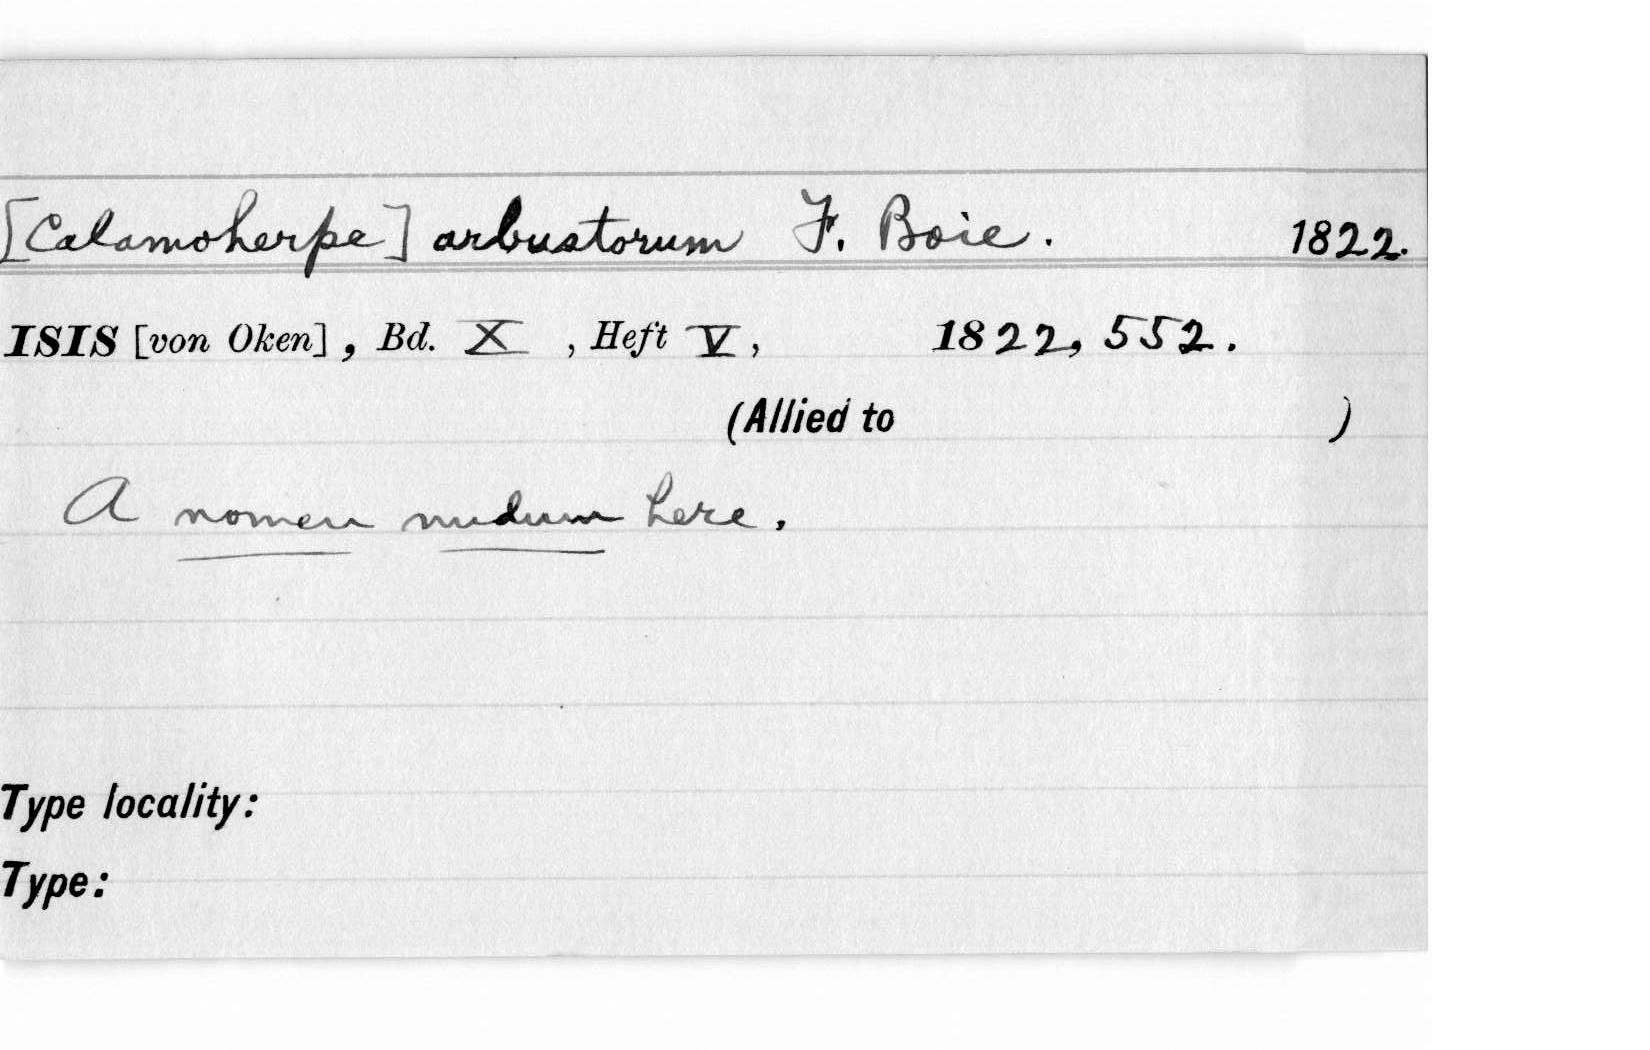 [Calamoherpe] arbustorum F. Boie. 1822.
ISIS [von Oken], Bd. X, Heft V, 1822, 552.
(Allied to )
A nomen nudum here.
Type locality:
Type: